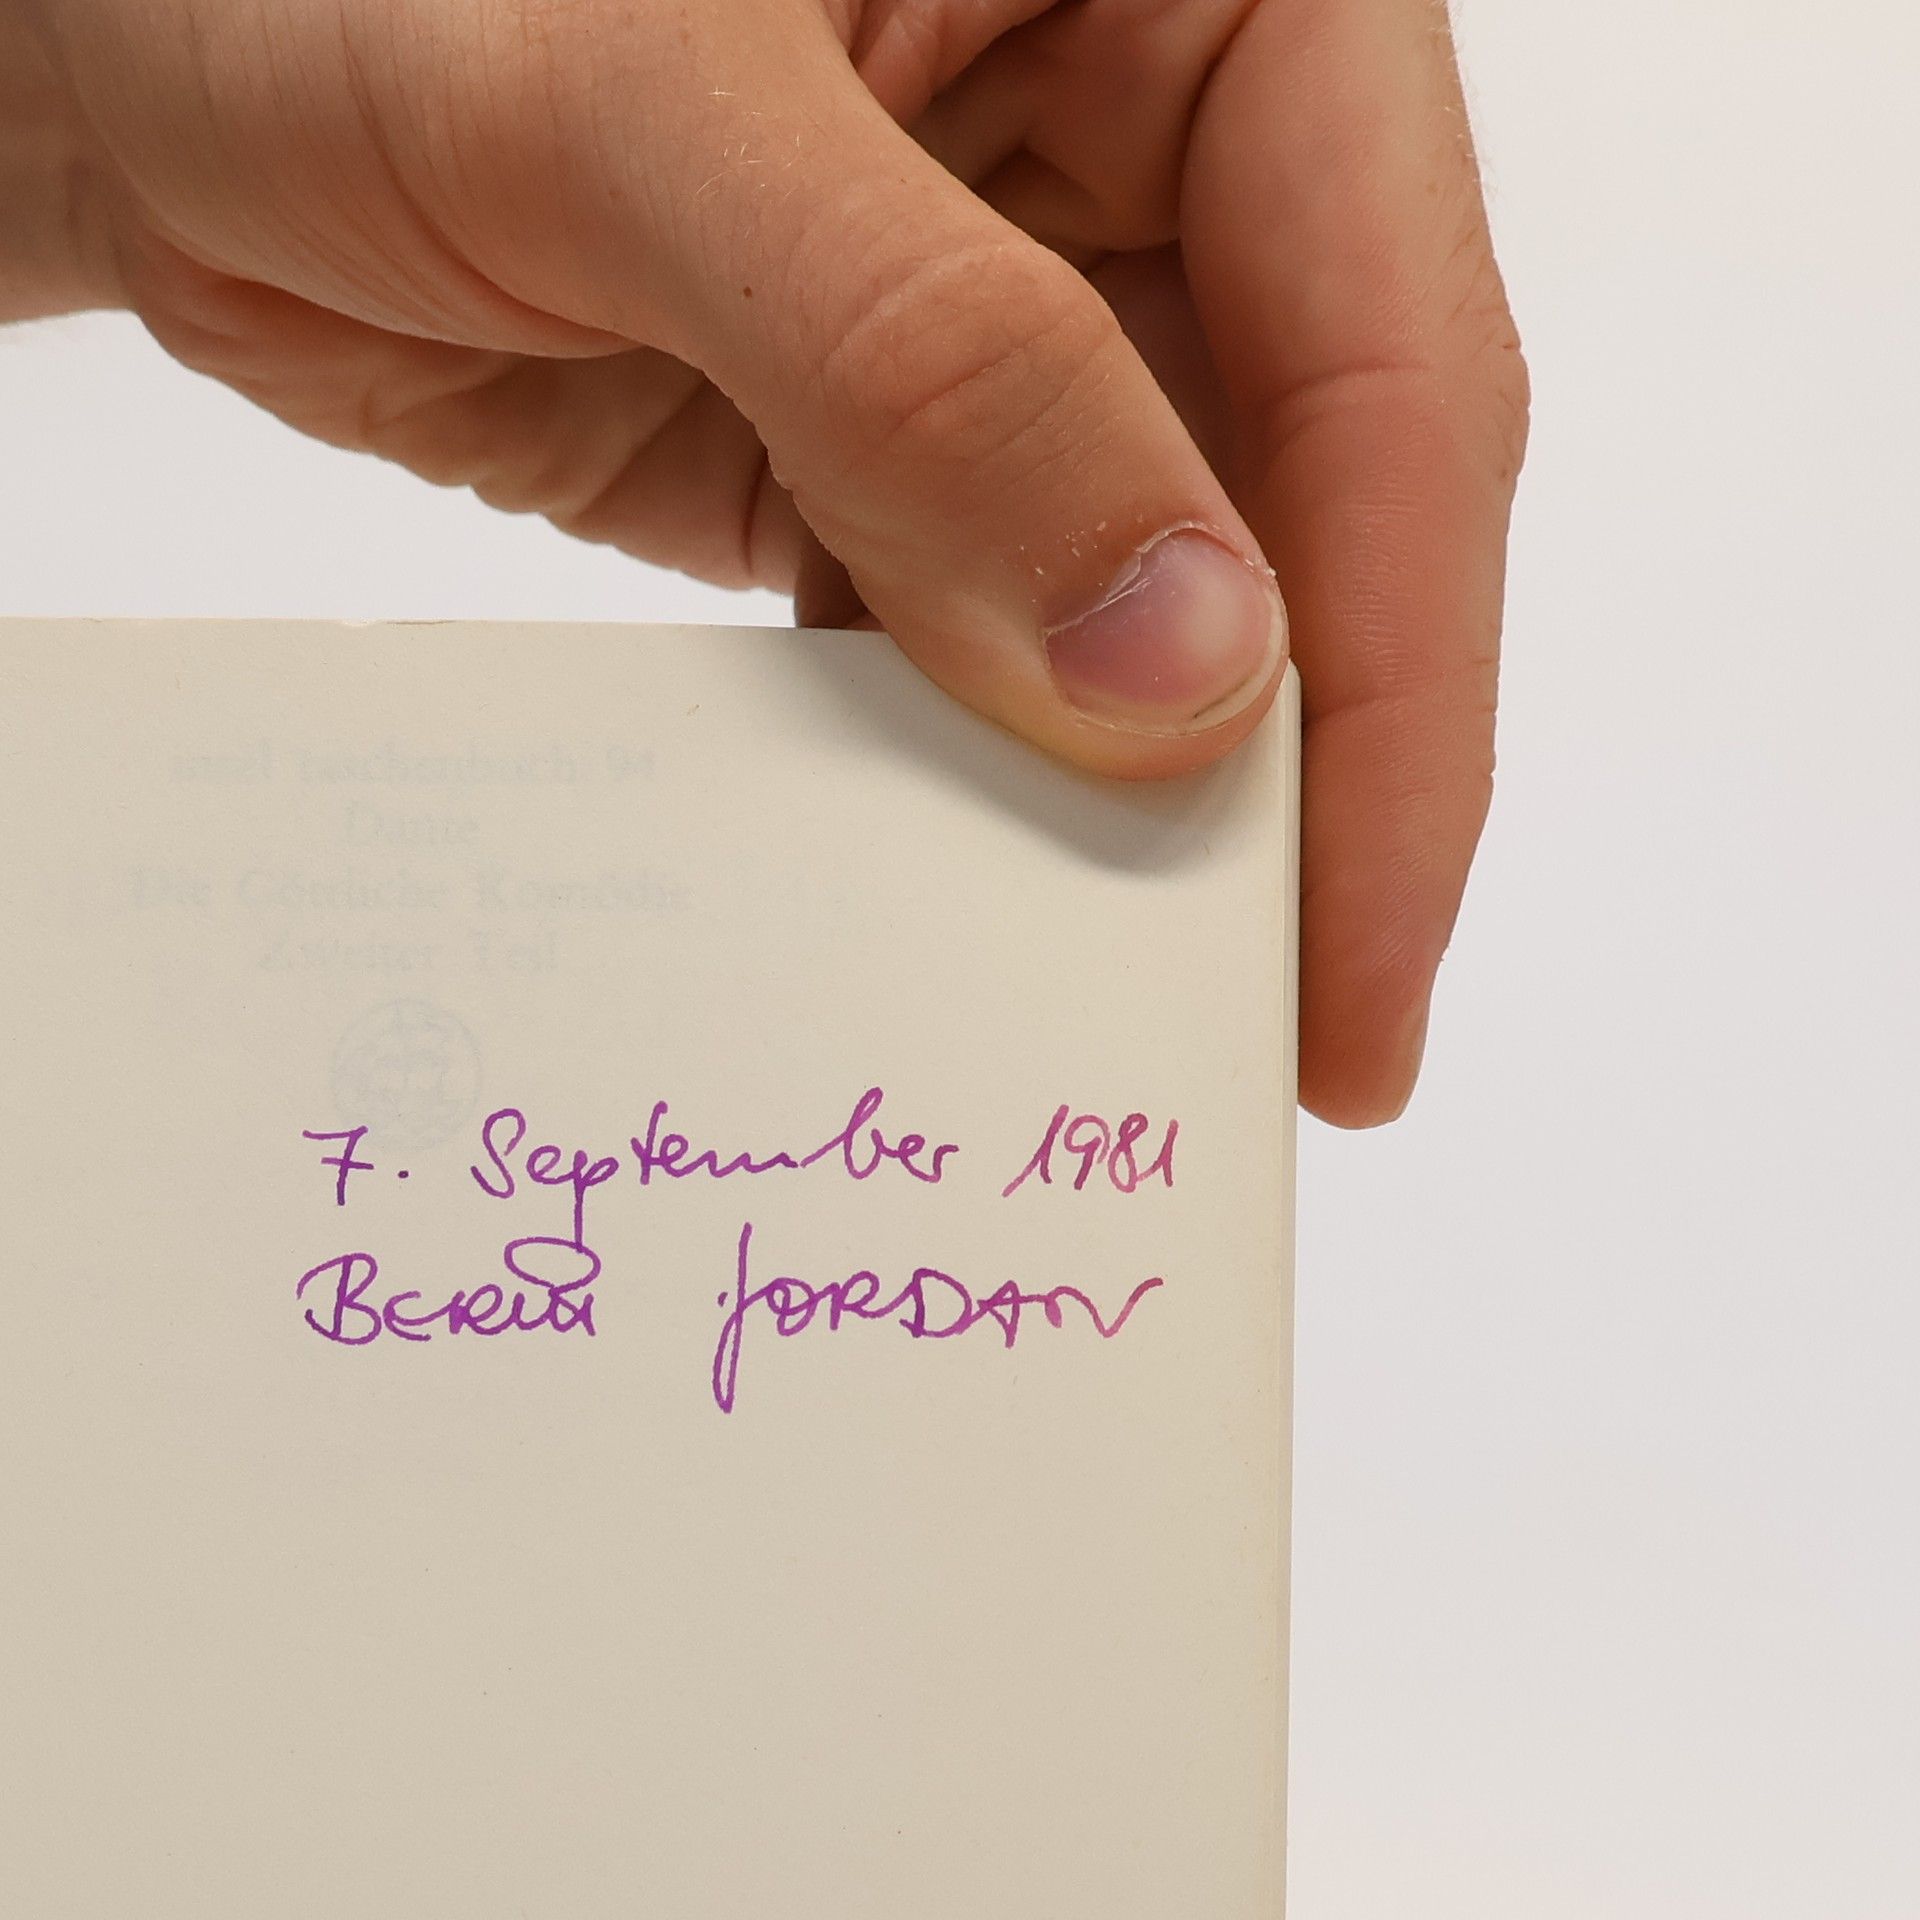 insel taschenbuch 94
Dante
Die Göttliche Komödie
Zweiter Teil
7. September 1981
JORDAN